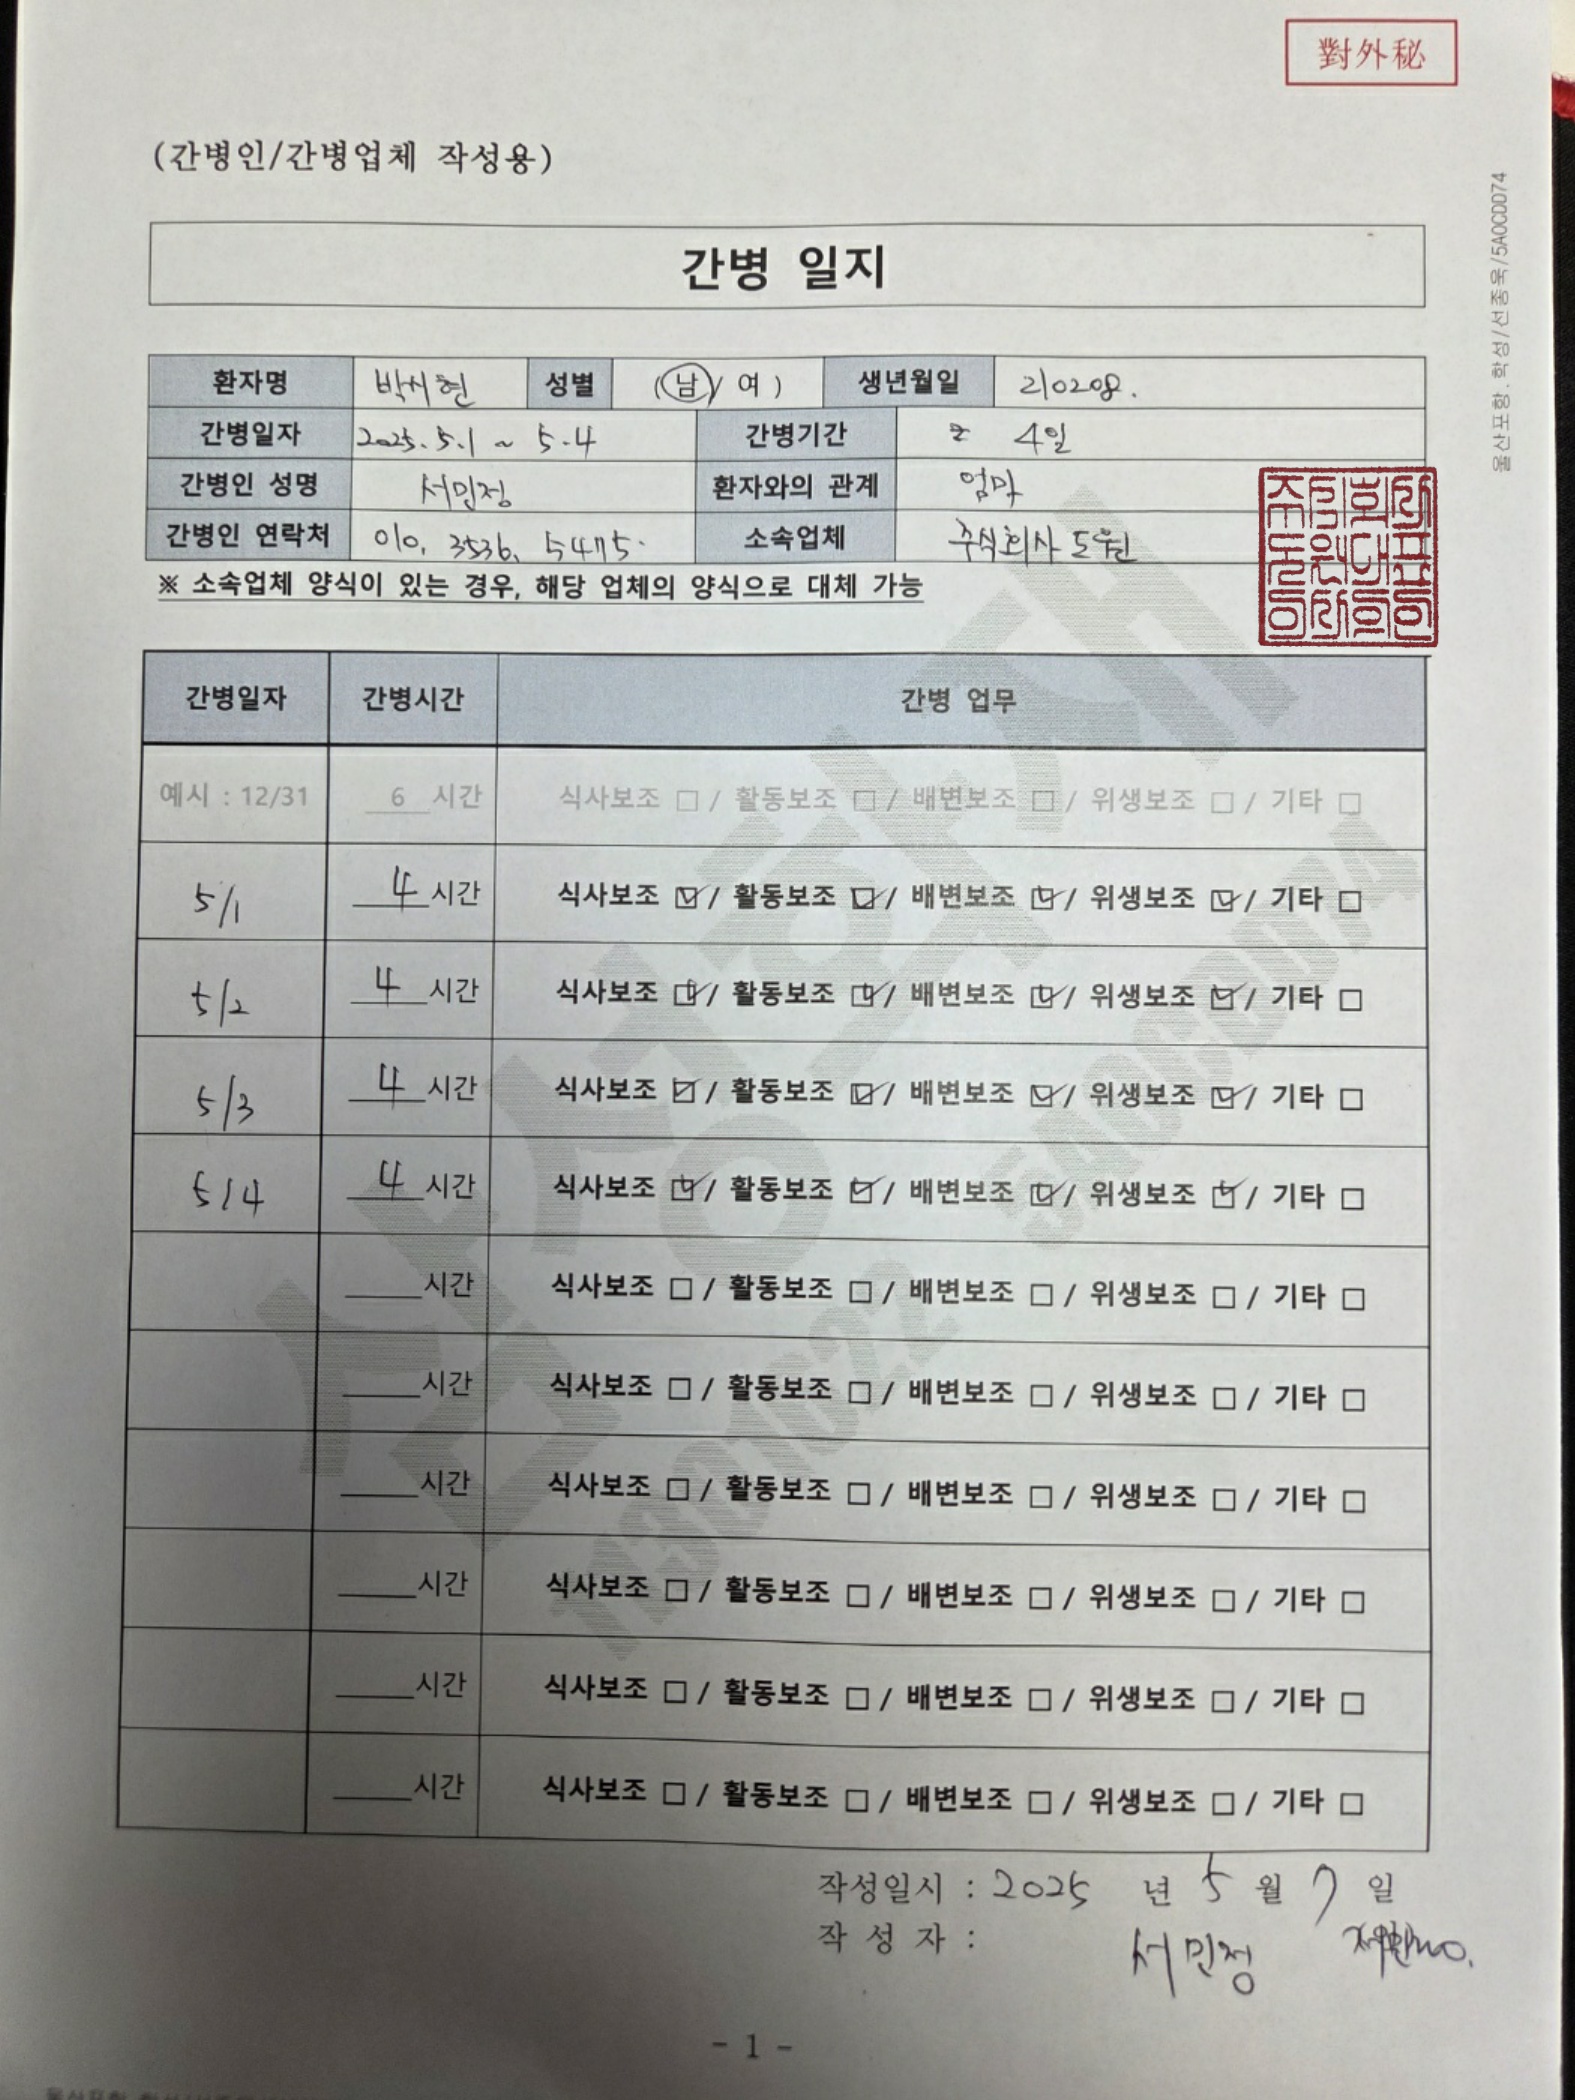 對外秘
(간병인/간병업체 작성용)
울산포항.학성/선종욱/5A0CD074
간병 일지
환자명 박시현 성별 (남/ 여 ) 생년월일 210208.
간병일자 2025.5.1 ~ 5.4 간병기간 총 4일
간병인 성명 서민정 환자와의 관계 엄마
간병인 연락처 010. 3536. 5475. 소속업체 주식회사 도원
※ 소속업체 양식이 있는 경우, 해당 업체의 양식으로 대체 가능
간병일자 간병시간 간병 업무
예시 : 12/31 6 시간 식사보조 □ / 활동보조 □ / 배변보조 □ / 위생보조 □ / 기타 □
5/1 4 시간 식사보조 ☑ / 활동보조 ☑ / 배변보조 ☑ / 위생보조 ☑ / 기타 □
5/2 4 시간 식사보조 ☑ / 활동보조 ☑ / 배변보조 ☑ / 위생보조 ☑ / 기타 □
5/3 4 시간 식사보조 ☑ / 활동보조 ☑ / 배변보조 ☑ / 위생보조 ☑ / 기타 □
5/4 4 시간 식사보조 ☑ / 활동보조 ☑ / 배변보조 ☑ / 위생보조 ☑ / 기타 □
____시간 식사보조 □ / 활동보조 □ / 배변보조 □ / 위생보조 □ / 기타 □
____시간 식사보조 □ / 활동보조 □ / 배변보조 □ / 위생보조 □ / 기타 □
____시간 식사보조 □ / 활동보조 □ / 배변보조 □ / 위생보조 □ / 기타 □
____시간 식사보조 □ / 활동보조 □ / 배변보조 □ / 위생보조 □ / 기타 □
____시간 식사보조 □ / 활동보조 □ / 배변보조 □ / 위생보조 □ / 기타 □
____시간 식사보조 □ / 활동보조 □ / 배변보조 □ / 위생보조 □ / 기타 □
삼성화재
5A0CD074
작성일시 : 2025 년 5 월 7 일
작 성 자 : 서민정
- 1 -